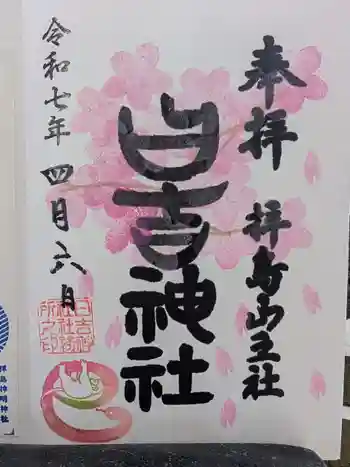 奉拝
拝島山王社
日吉神社
令和七年四月六日
拝島神明神社